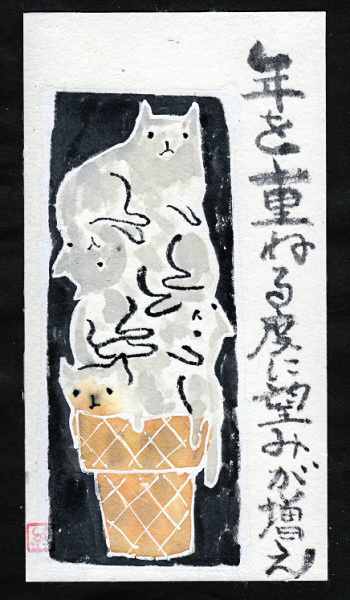 年を重ねる度に望みが増え